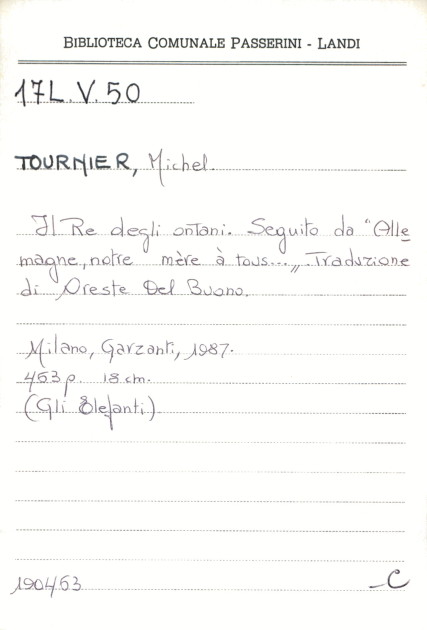 BIBLIOTECA COMUNALE PASSERINI - LANDI
17L.V.50
TOURNIER, Michel.
Il Re degli ontani. Seguito da "Alle
magne, notre mère à tous...„ Traduzione
di Oreste Del Buono.
Milano, Garzanti, 1987.
453 p. 18 cm.
(Gli Elefanti)
190463 C